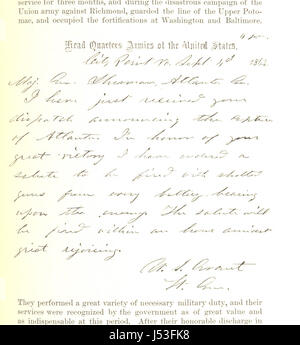 service for three months, and during the disastrous campaign of the
Union army against Richmond, guarded the line of the Upper Poto-
mac, and occupied the fortifications at Washington and Baltimore,
4 P.M.
Head Quarters Armies of the United States,
City Point Va. Sept 4th 1864
Maj. Gen Sherman, Atlanta Ga.
I have just received your
dispatch announcing the capture
of Atlanta. In honor of your
great victory I have ordered a
salute to be fired with shotted
guns from every battery bearing
upon the enemy. The salute will
be fired within an hour amidst
great rejoicing.
U. S. Grant
Lt. Gen.
They performed a great variety of necessary military duty, and their
services were recognized by the government as of great value and
as indispensable at this period. After their honorable discharge in
alamy
J53FK8